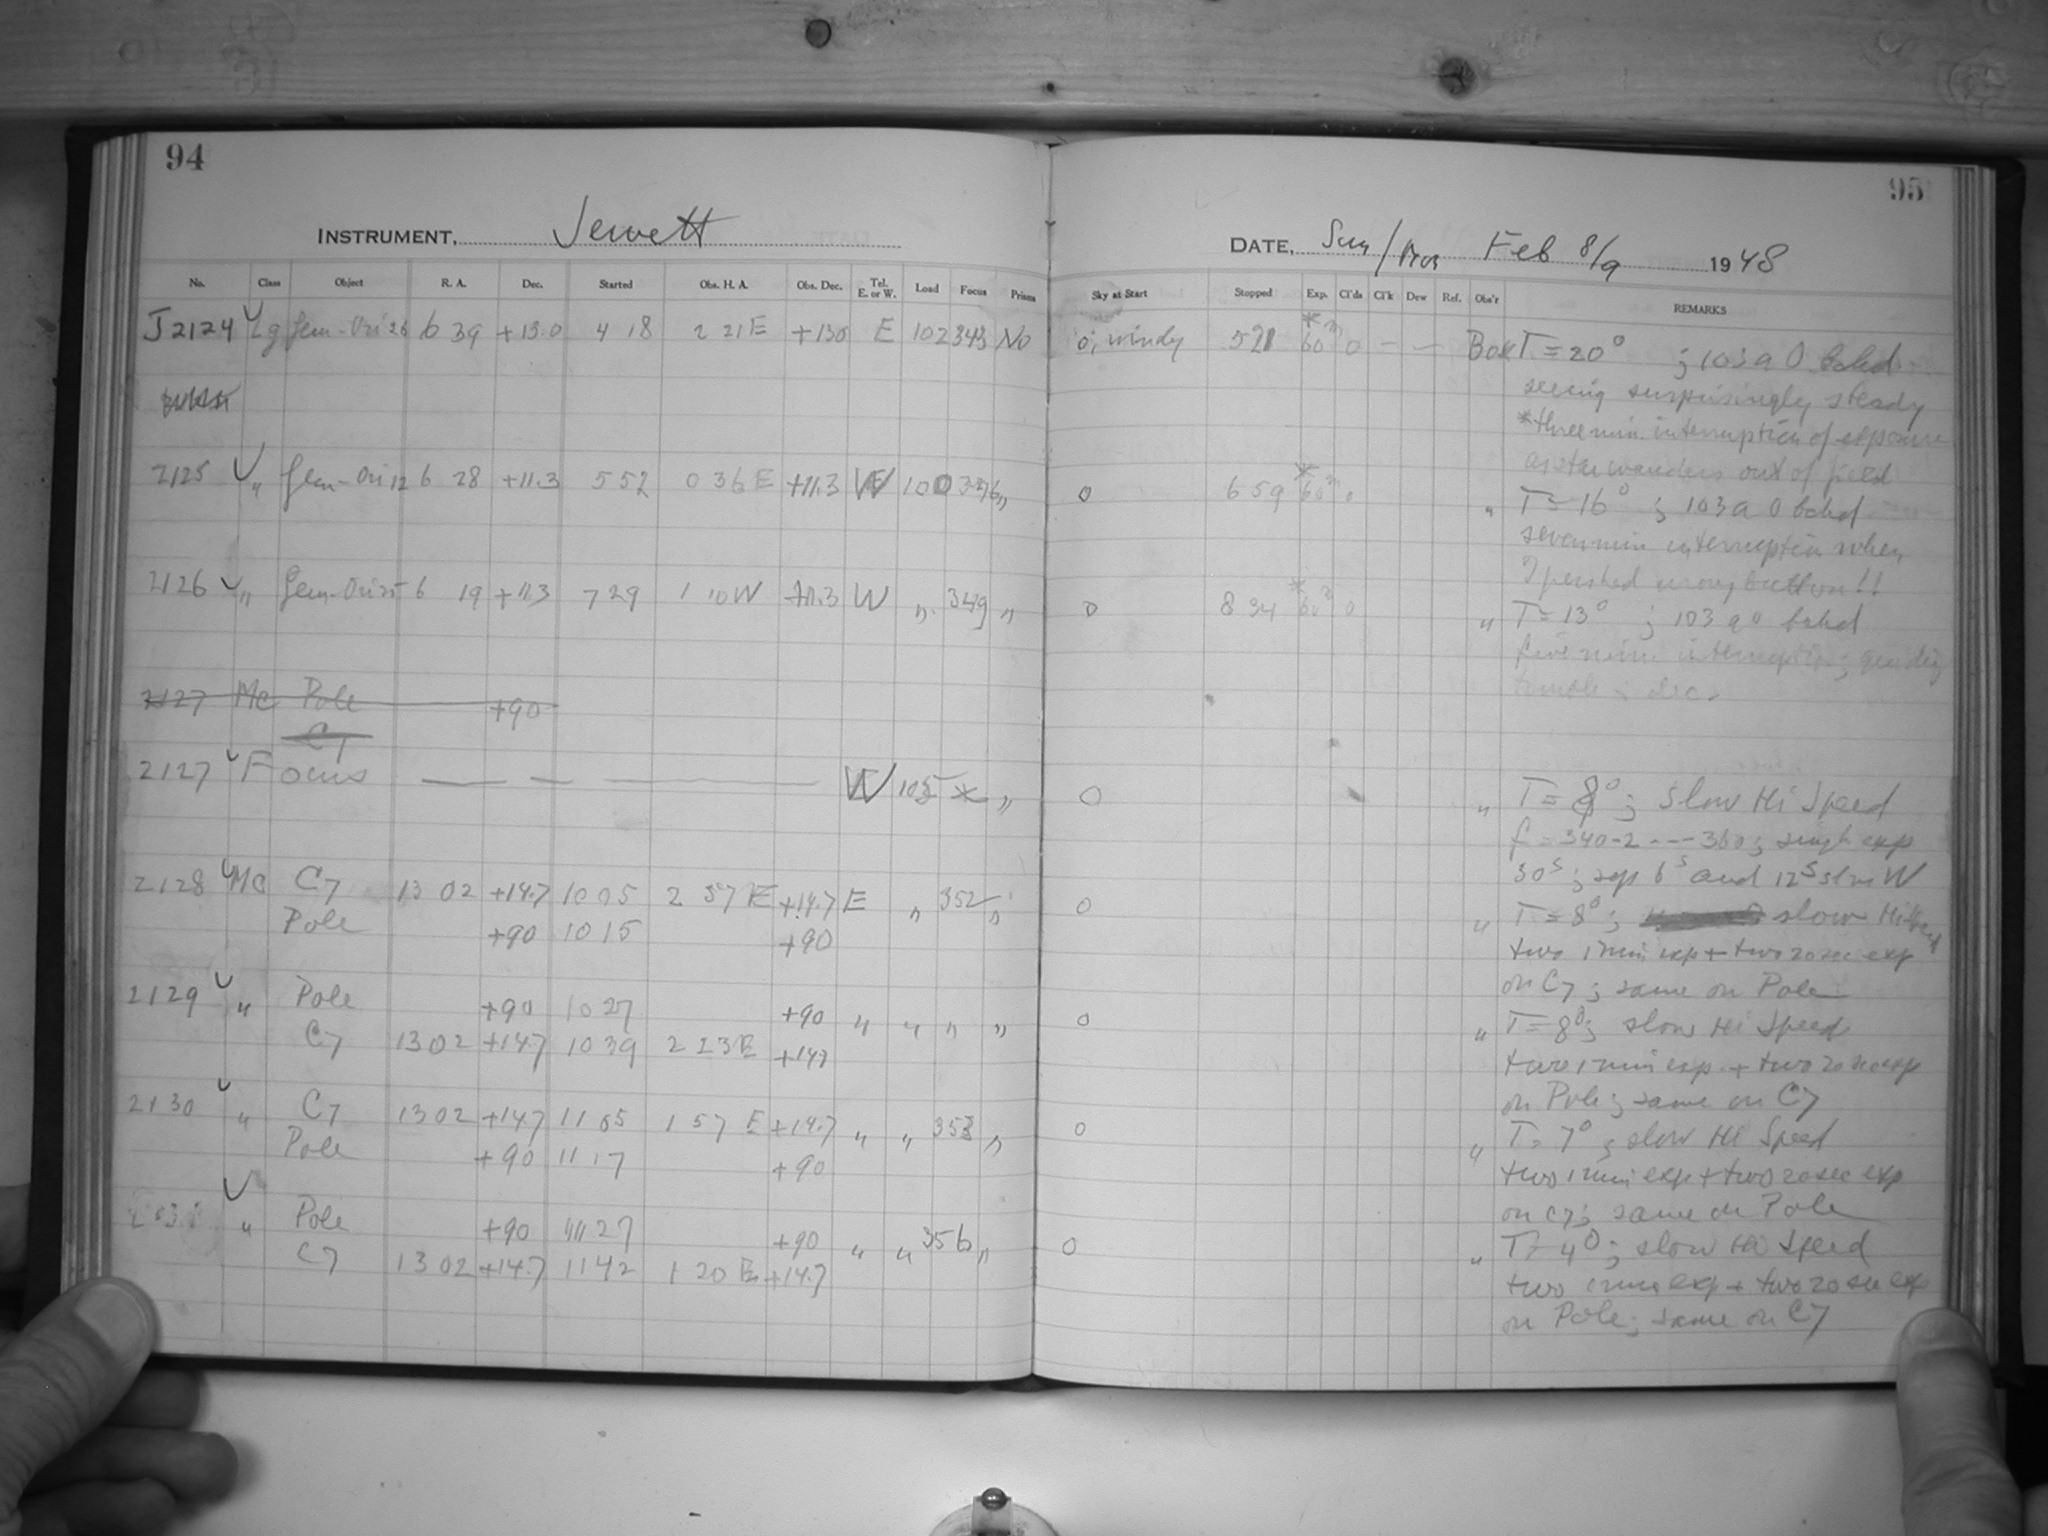 94
95
INSTRUMENT, Jewett
DATE, Sun/Mon Feb 8/9 1948
No. Class Object R. A. Dec. Started Obs. H. A. Obs. Dec. Tel. E. or W. Load Focus Prism Sky at Start Stopped Exp. Cl'ds Cl'k Dew Ref. Obs'r REMARKS
J2124 Lg Gem-Ori 26 6 39 +13.0 4 18 2 21 E +13.0 E 102 343 No 0; windy 521 *60m 0 — — Bok T = 20° ; 103a O baked
seeing surprisingly steady
*three min. interruption of exposure
as star wanders out of field
2125 " Gem-Ori 12 6 28 +11.3 5 52 0 36 E +11.3 W 100 " 0 6 59 *60m 0 " T = 16° ; 103a O baked
seven min interruption when
I pushed wrong button!!
2126 " Gem-Ori 25 6 19 +11.3 7 29 1 10 W +11.3 W " 349 " 0 8 34 *60m 0 " T = 13° ; 103a O baked
five min. interruption;
trouble in dec.
2127 Mc Pole +90
C7
2127 Focus — — — W 105 * " 0 " T = 8°; slow Hi Speed
f = 340-2 --- 360; single exp
30s; sep 6s and 12s slow W
2128 Mc C7 13 02 +14.7 10 05 2 57 E +14.7 E " 352 " 0 " T = 8°; slow Hi Speed
Pole +90 10 15 +90
two 1 min exp + two 20 sec exp
on C7; same on Pole
2129 " Pole +90 10 27 +90 " " " " 0 " T = 8°; slow Hi Speed
C7 13 02 +14.7 10 39 2 23 E +14.7
two 1 min exp. + two 20 sec exp
on Pole; same on C7
2130 " C7 13 02 +14.7 11 05 1 57 E +14.7 " " 353 " 0 " T = 7°; slow Hi Speed
Pole +90 11 17 +90
two 1 min exp + two 20 sec exp
on C7; same on Pole
" Pole +90 11 27 +90 " " 356 " 0 " T = 4°; slow Hi Speed
C7 13 02 +14.7 11 42 1 20 E +14.7
two 1 min exp + two 20 sec exp
on Pole; same on C7